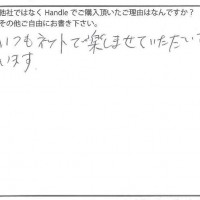 他社ではなくHandleでご購入頂いたご理由はなんですか?
その他ご自由にお書き下さい。
いつもネットで楽しませていただいて
います。